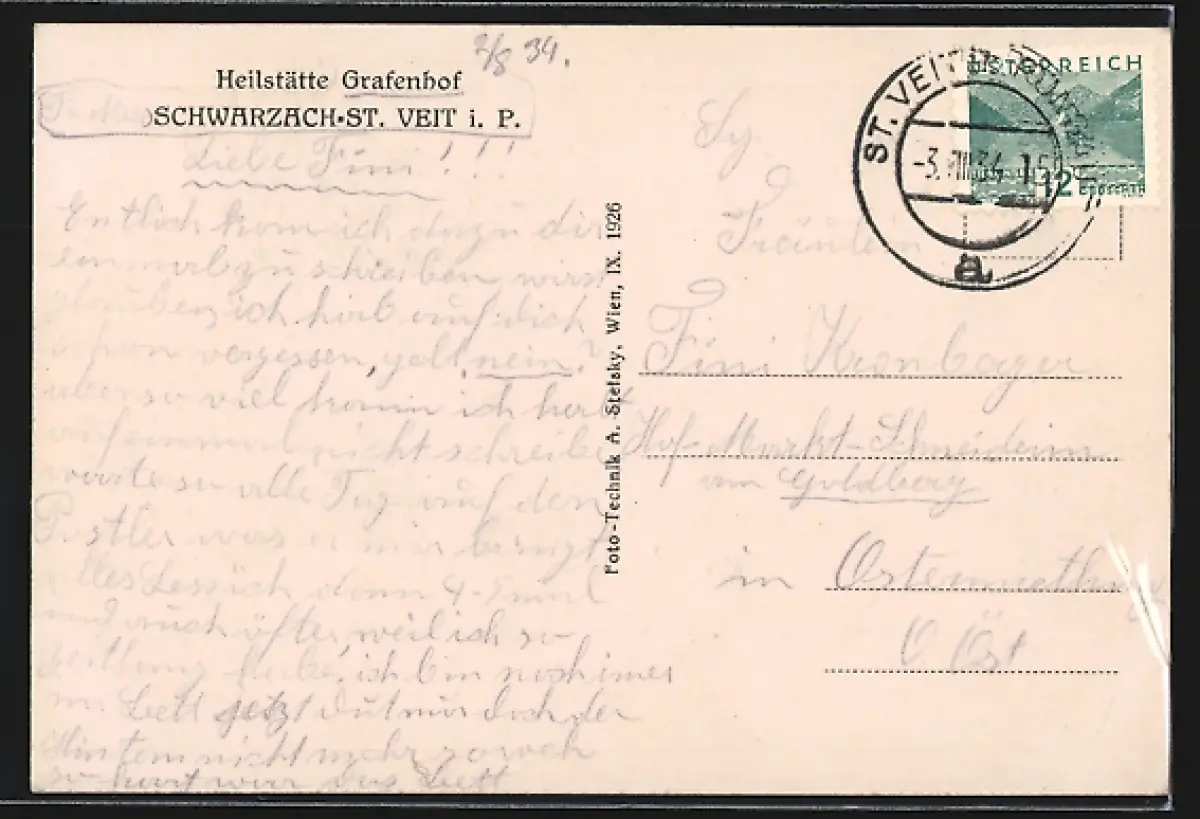 2/8 34.
Heilstätte Grafenhof
SCHWARZACH-ST. VEIT i. P.
Liebe Fini!!!
Entlich kom ich dazu dir
einmal zu schreiben wirst
glauben ich hab auf dich
schon vergessen, gelt nein?
aber so viel kann ich halt
auf einmal nicht schreiben
warte so alle Tag auf den
Postler was er mir bringt
alles Less ich dann 4-5 mal
und auch öfter, weil ich so
Zeitlang habe, ich bin noch imer
im Bett jetzt dut mir doch der
Hintern nicht mehr so weh
so hart war das Bett
Foto-Technik A. Stefsky, Wien, IX. 1926
ÖSTERREICH
12
GROSCHEN
ST. VEIT
-3.VIII.34
a
Fräulein
Fini Kronberger
Hof-Markt-Schneiderin
am Goldberg
in Ostermiething
O Öst